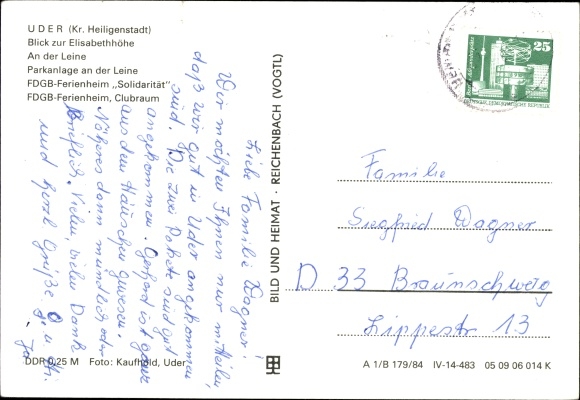 UDER (Kr. Heiligenstadt)
Blick zur Elisabethhöhe
An der Leine
Parkanlage an der Leine
FDGB-Ferienheim „Solidarität"
FDGB-Ferienheim, Clubraum
Liebe Familie Wagner!
Wir möchten Ihnen nur mitteilen,
daß wir gut in Uder angekommen
sind. Die zwei Pakete sind gut
angekommen. Gerhard ist ganz
aus dem Häuschen gewesen.
Näheres dann mündlich oder
brieflich. Vielen, vielen Dank
und herzl. Grüße
BILD UND HEIMAT · REICHENBACH (VOGTL)
25
Familie
Siegfried Wagner
D 33 Braunschweig
Lippestr 13
DDR 0,25 M Foto: Kaufhold, Uder
A 1/B 179/84 IV-14-483 05 09 06 014 K